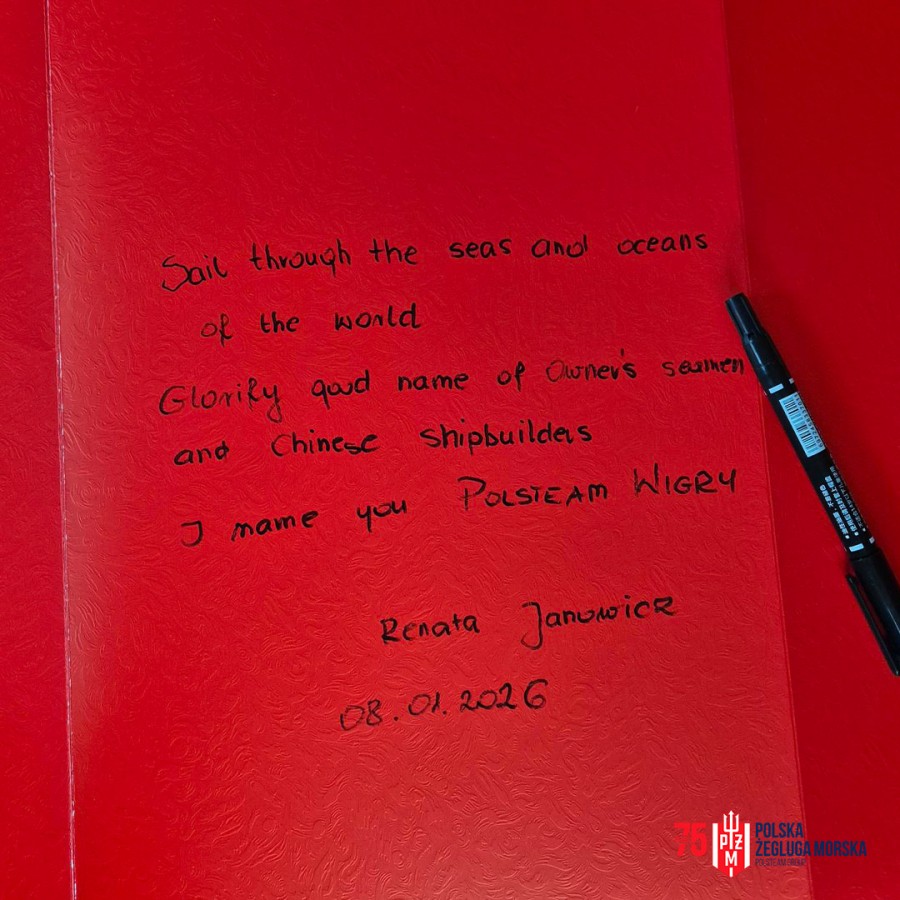 Sail through the seas and oceans
of the world
Glorify good name of Owner's seamen
and Chinese shipbuilders
I name you POLSTEAM WIGRY
Renata Janowicz
08.01.2026
75
PŻM
POLSKA
ŻEGLUGA MORSKA
POLSTEAM GROUP